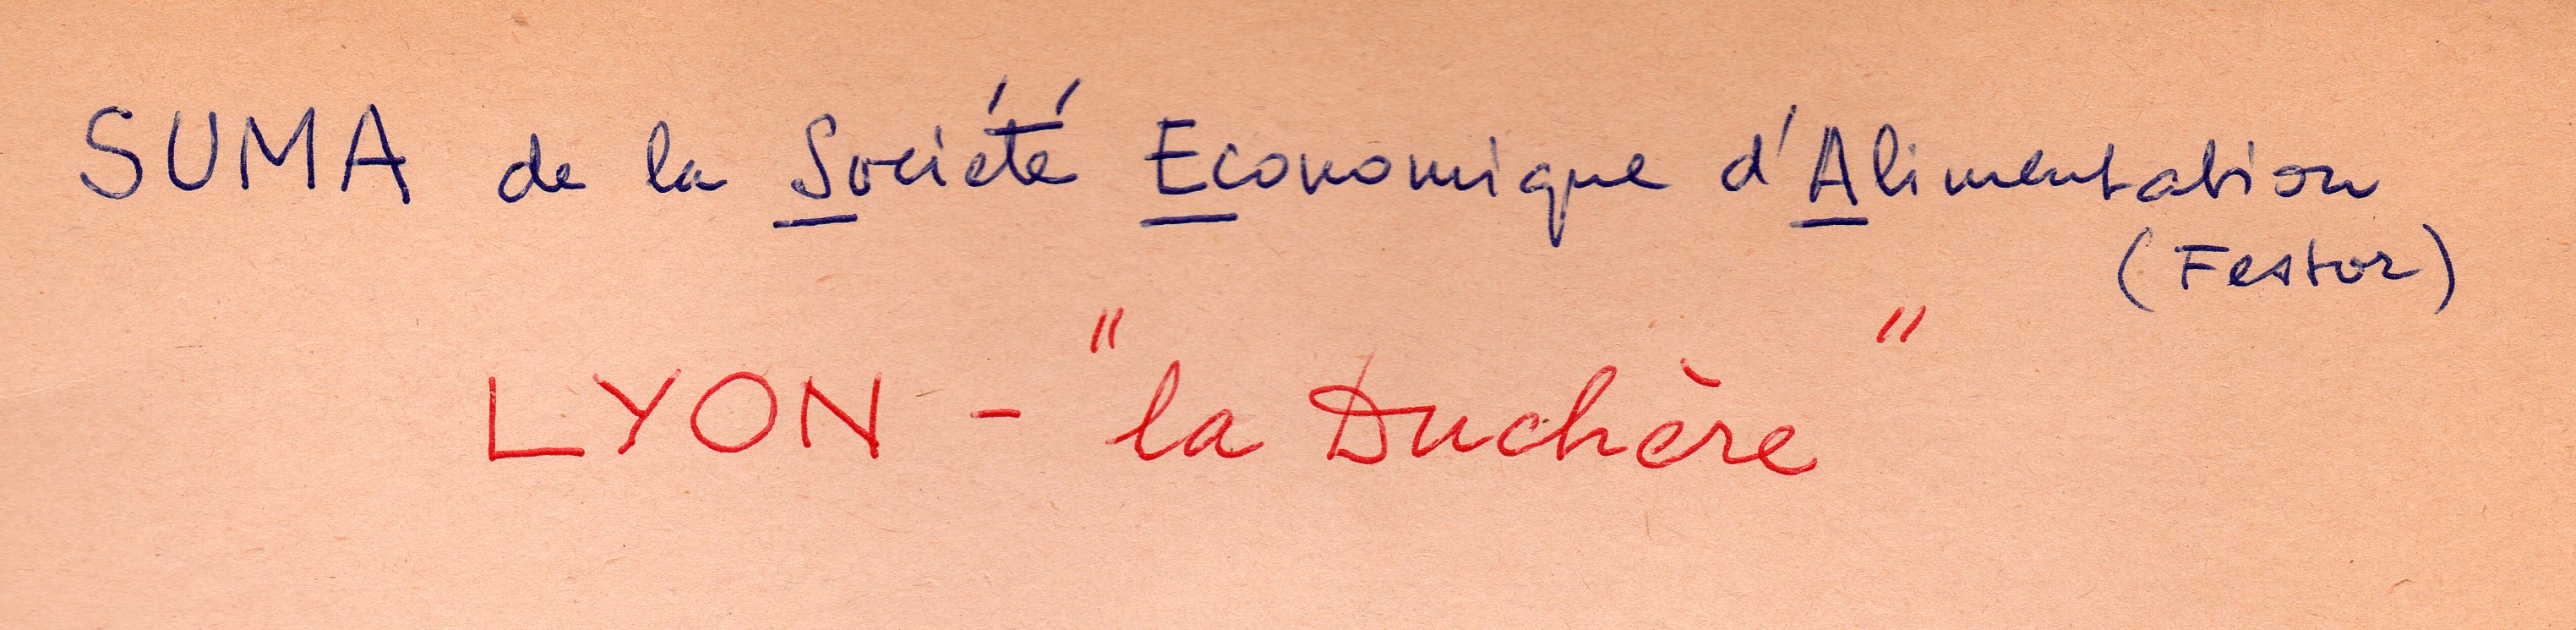 SUMA de la Société Economique d'Alimentation
(Festor)
LYON - "la Duchère"